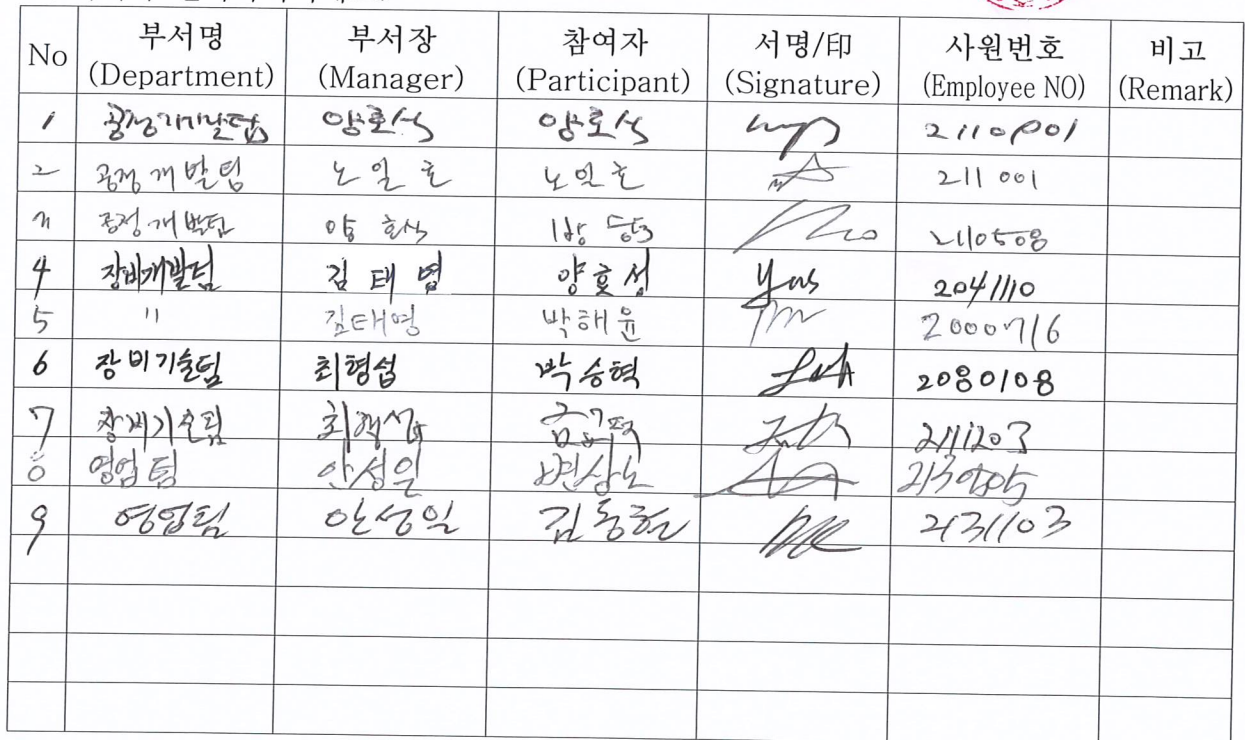 No 부서명 (Department) 부서장 (Manager) 참여자 (Participant) 서명/印 (Signature) 사원번호 (Employee NO) 비고 (Remark)
1 공정개발팀 양호식 양호식
2 공정개발팀 노일호 노일호 211001
3 공정개발팀 양호식 2110508
4 장비개발팀 김태영 양효성 2041110
5 " 김태영 박해윤 2000716
6 장비기술팀 최형섭 박승혁 2080108
7 장비기술팀 최형섭 2111203
8 영업팀 안성일 변상노
9 영업팀 안성일 김동현 2131103